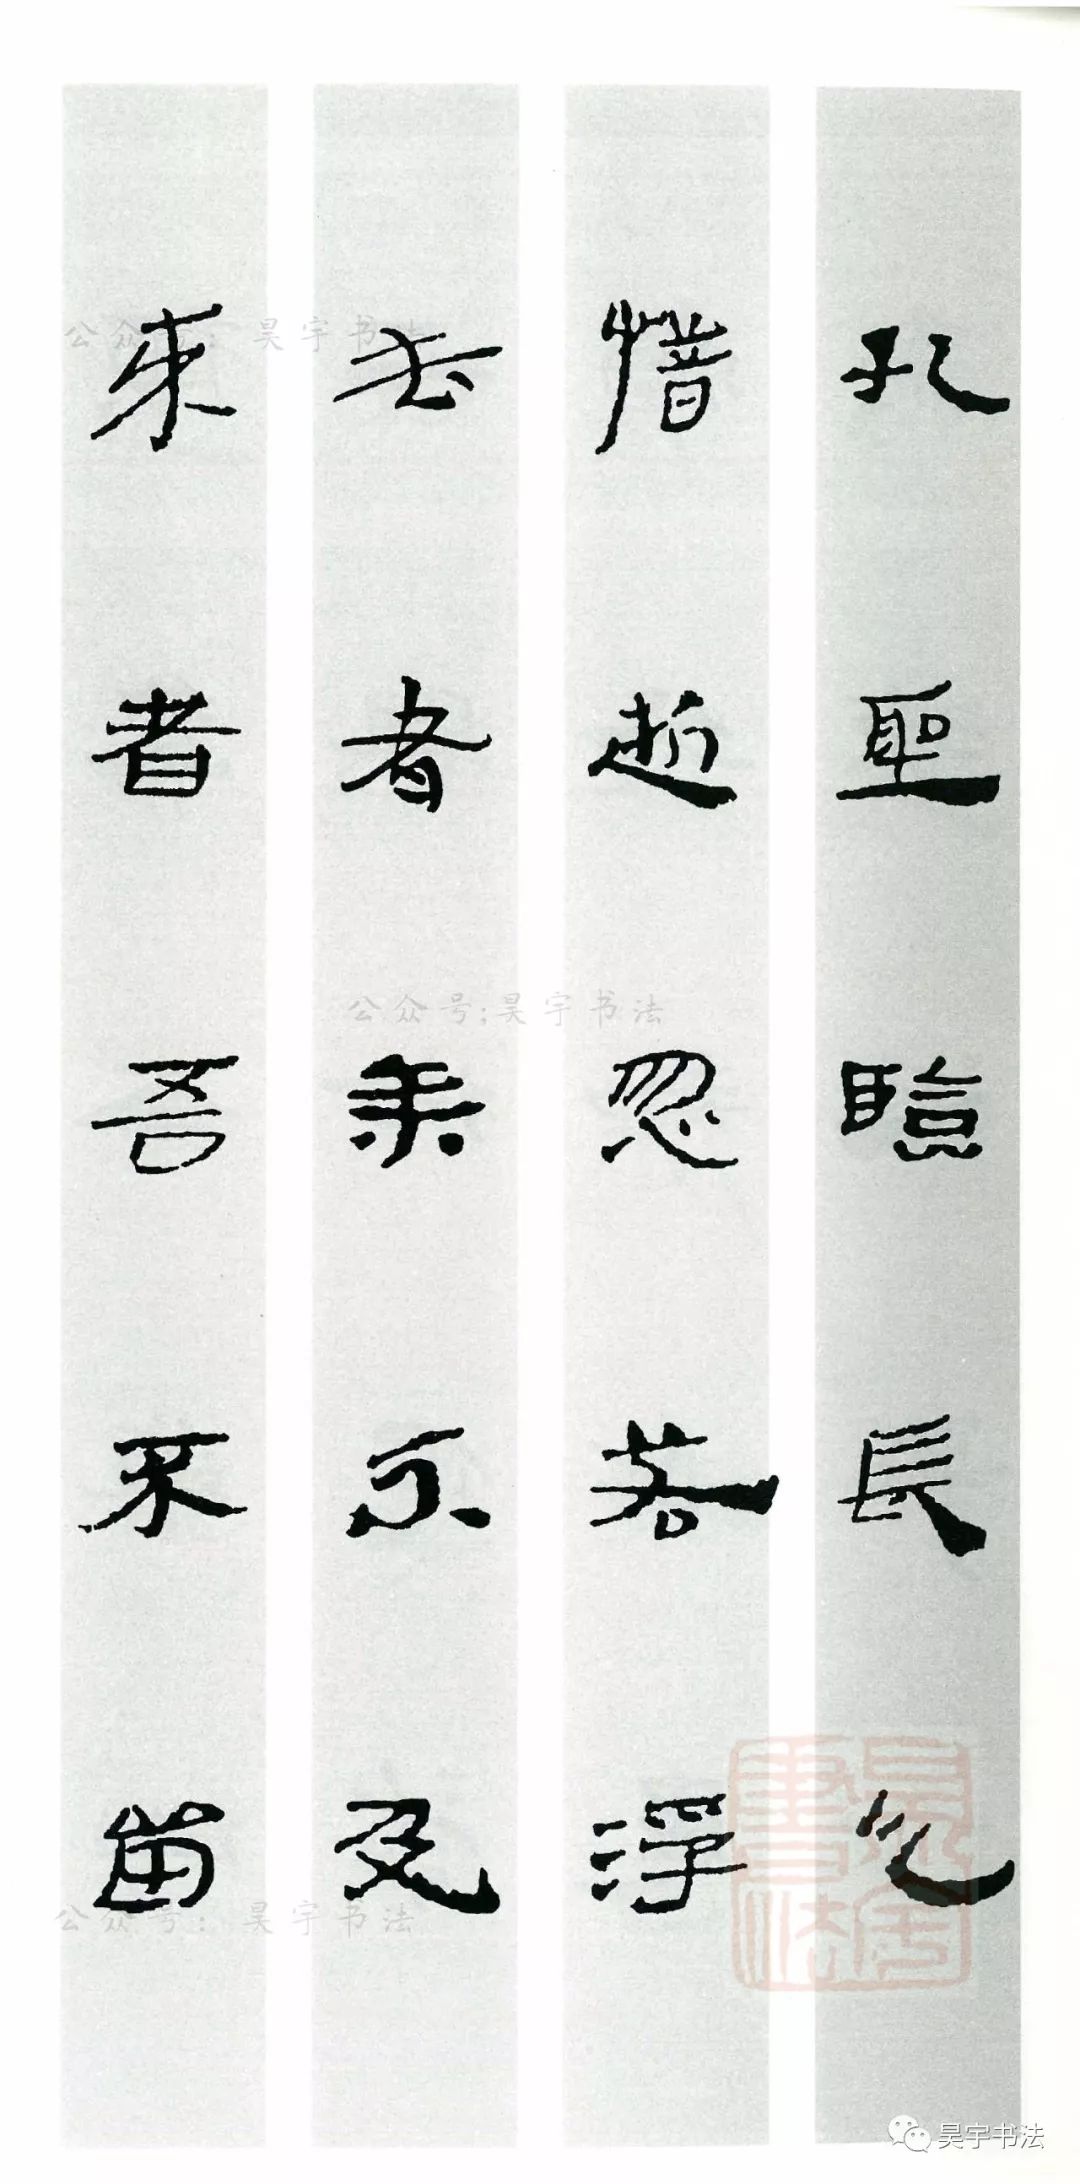 孔聖臨長川
惜逝忽若浮
去者余不及
来者吾不留
公众号：昊宇书法
公众号;昊宇书法
公众号：昊宇书法
昊宇書法
昊宇书法